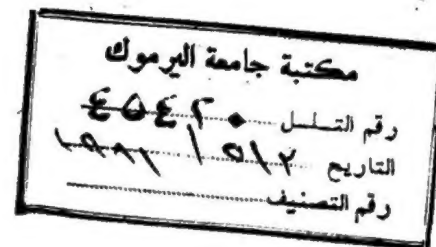 مكتبة جامعة اليرموك
رقم التسلسل ٤٥٤٢٠
التاريخ ٢/٥/١٩٨١
رقم التصنيف